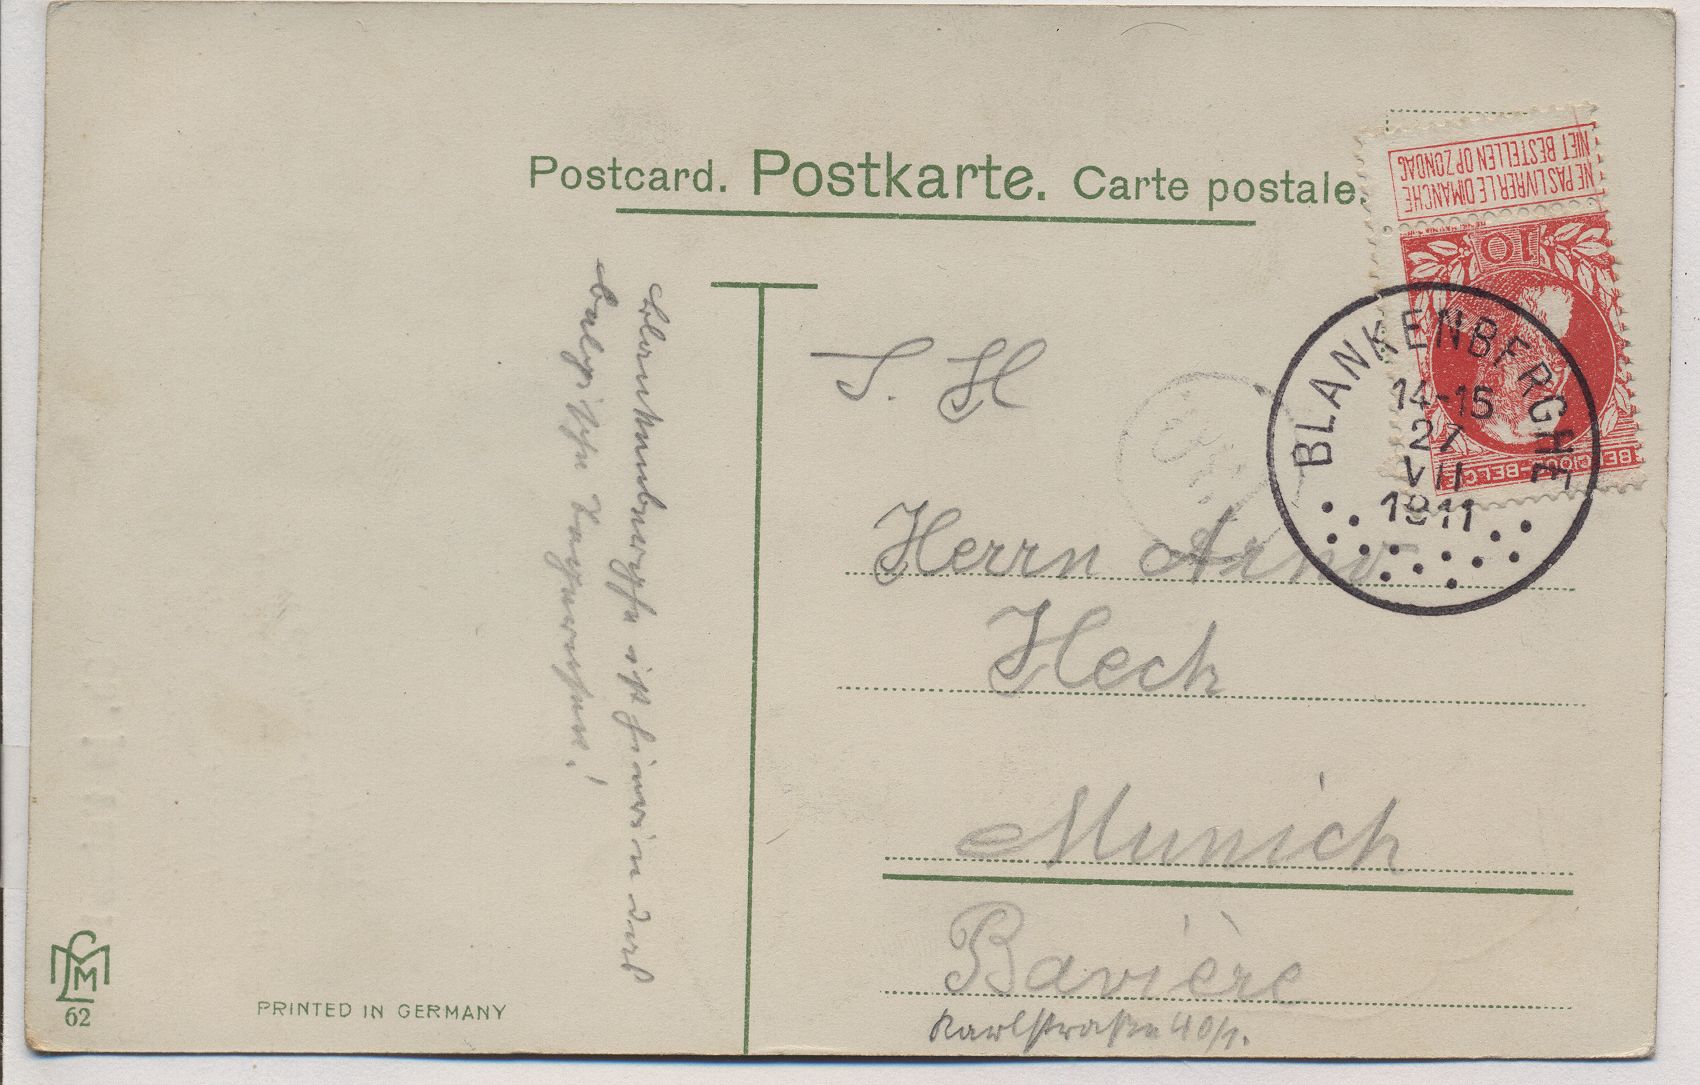 Postcard. Postkarte. Carte postale.
NE PAS LIVRER LE DIMANCHE
NIET BESTELLEN OP ZONDAG
10
BELGIQUE-BELGIE
BLANKENBERGHE
14-15
27
VII
1911
S. H
Herrn Arno
Heck
Munich
Bavière
Karlstraße 40/1.
Blankenberghe ist hierin das
belgische
LM
62
PRINTED IN GERMANY